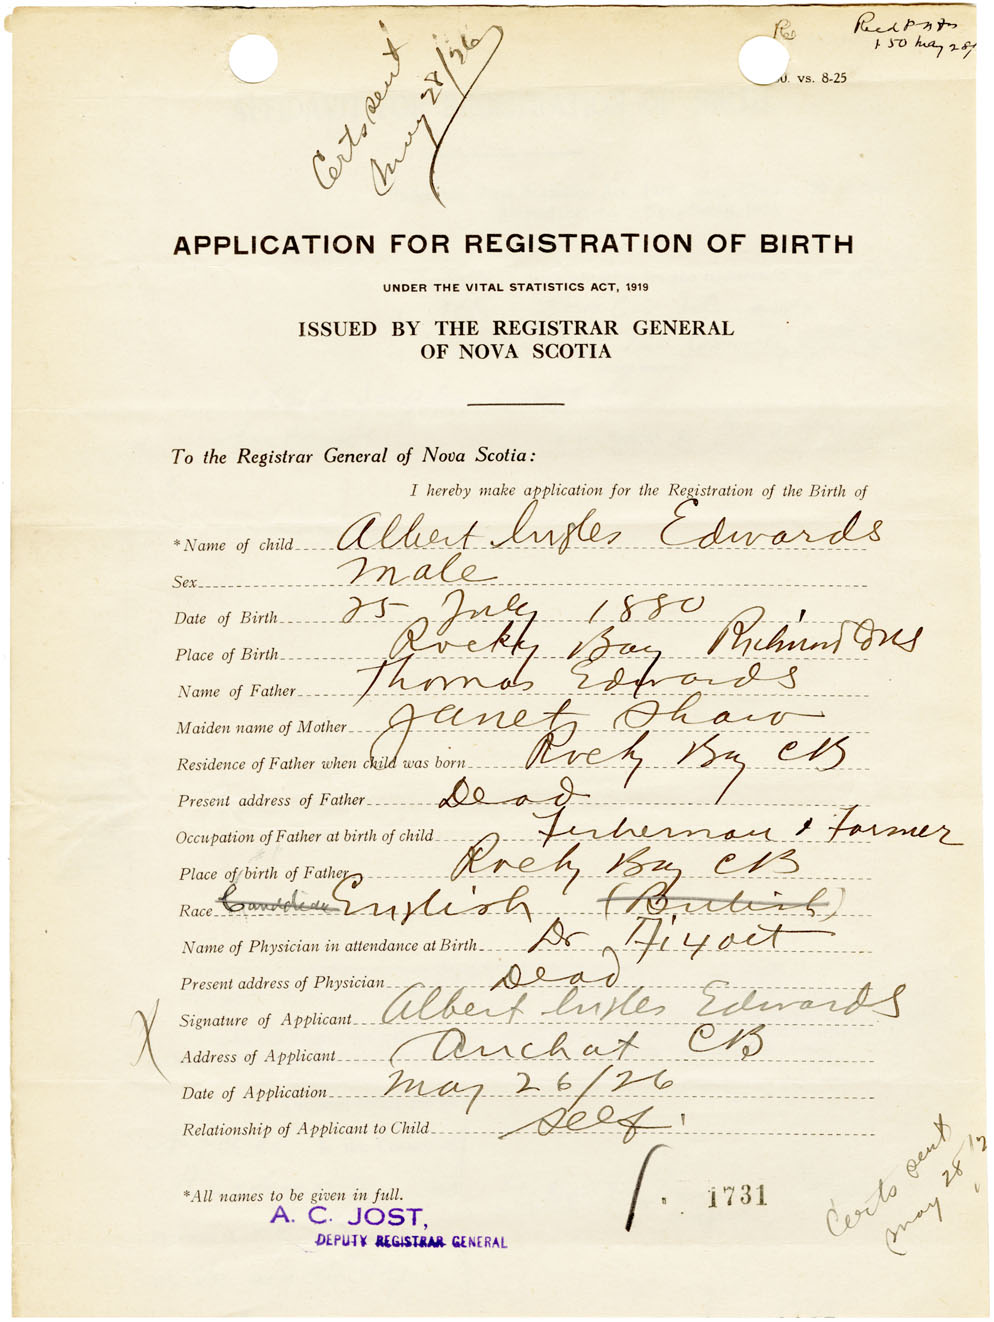 Certs sent
May 28/26
Recd
1 50 May 28/
vs. 8-25
APPLICATION FOR REGISTRATION OF BIRTH
UNDER THE VITAL STATISTICS ACT, 1919
ISSUED BY THE REGISTRAR GENERAL
OF NOVA SCOTIA
To the Registrar General of Nova Scotia:
I hereby make application for the Registration of the Birth of
*Name of child Albert Ingles Edwards
Sex Male
Date of Birth 25 July 1880
Place of Birth Rocky Bay Richmond NS
Name of Father Thomas Edwards
Maiden name of Mother Janet Shaw
Residence of Father when child was born Rocky Bay CB
Present address of Father Dead
Occupation of Father at birth of child Fisherman & Farmer
Place of birth of Father Rocky Bay CB
Race Canadian English (British)
Name of Physician in attendance at Birth Dr
Present address of Physician Dead
Signature of Applicant Albert Ingles Edwards
Address of Applicant Arichat CB
Date of Application May 26/26
Relationship of Applicant to Child Self
*All names to be given in full.
1731
A. C. JOST,
DEPUTY REGISTRAR GENERAL
Certs sent
May 28